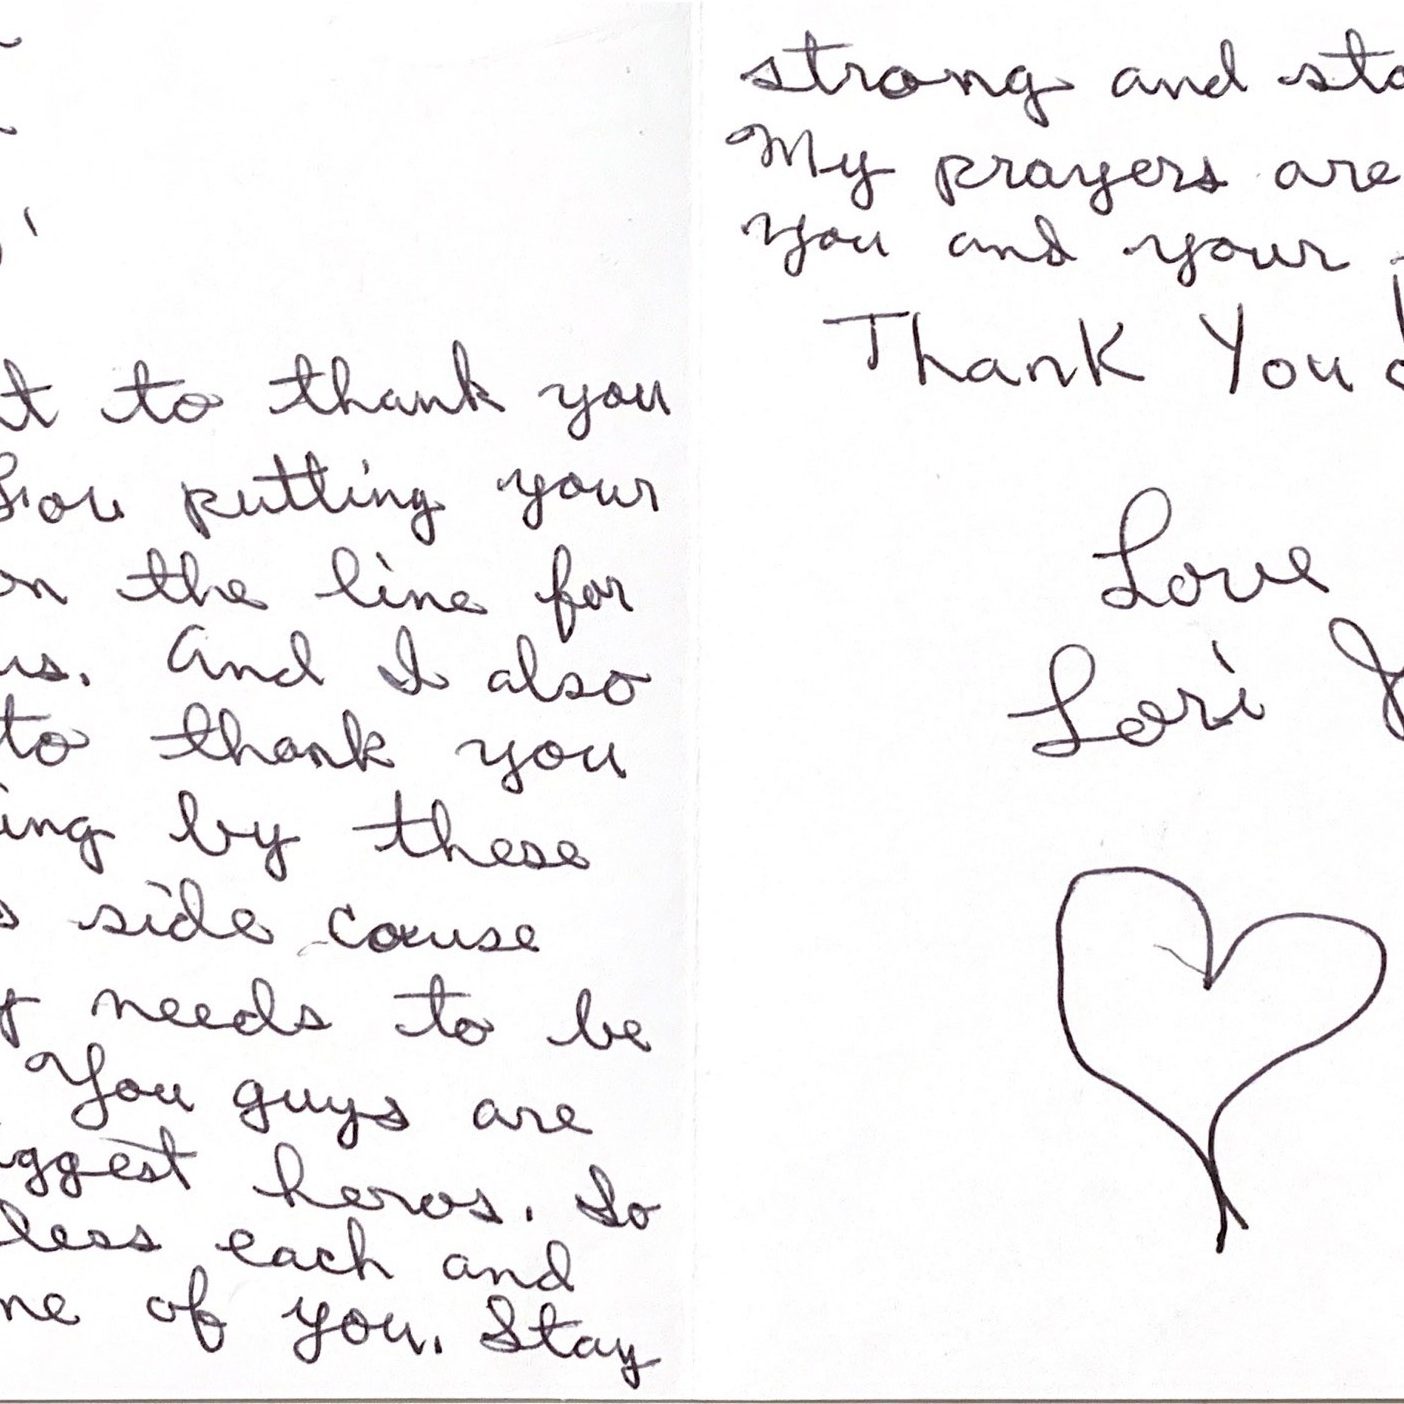 t to thank you
for putting your
on the line for
us. And I also
to thank you
ing by these
s side cause
y needs to be
You guys are
iggest heros. So
less each and
ne of you. Stay
strong and sta
My prayers are
you and your
Thank You
Love
Lori